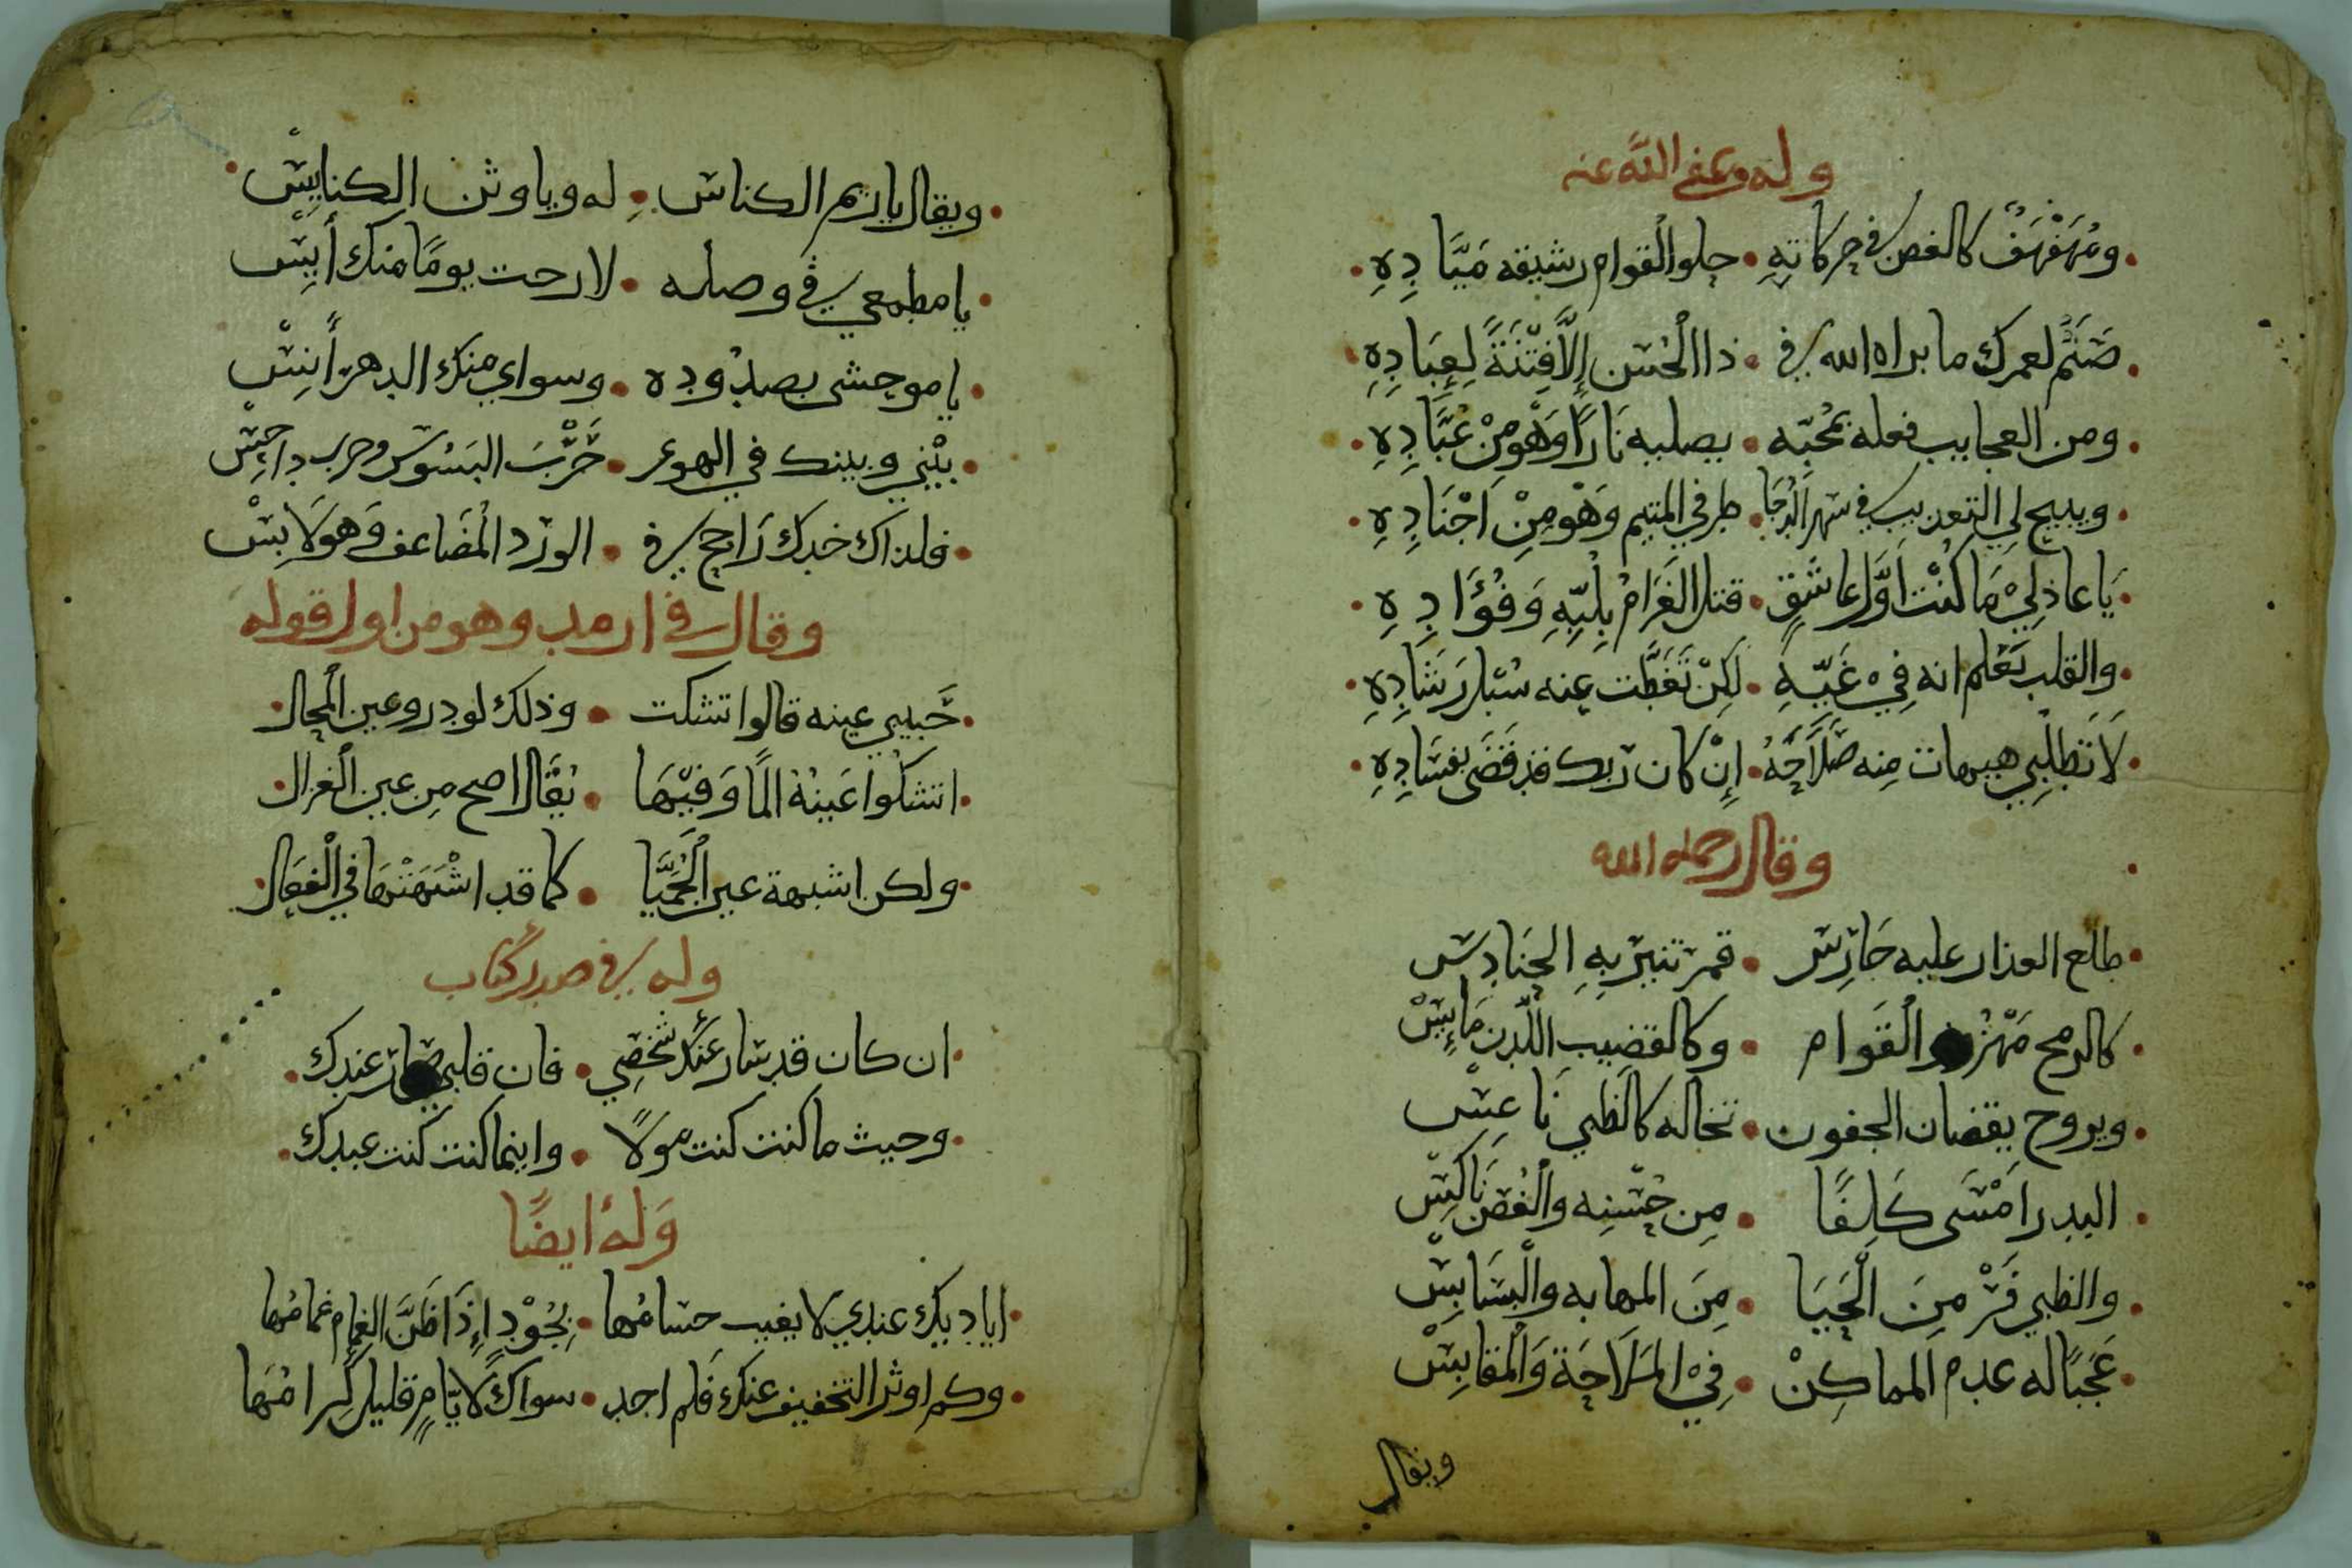 وله وعفى الله عنه
ومُهَفْهَفٌ كالغصن في حركاتهِ • حلو القوام رشيقه مَيَّادِهِ
صَنَمٌ لعمرك ما براه الله في • ذا الحُسن إلَّا فِتْنَةً لِعِبَادِهِ
ومن العجايب فعله بمُحبّه • يصليه نَارًا وَهْو مِنْ عُبَّادِهِ
ويبيح لي التعذيب في سهر الدُجَا • طرفي المتيم وَهْو مِنْ اَجْنَادِهِ
يَا عاذلِيْ مَا كُنْت اَوَّل عاشقٍ • قتل الغَرَامُ بِلُبِّهِ وَفُؤَادِهِ
والقلب يَعْلم انه فِيْ غَيّهِ • لَكِنْ تَغَطَّت عنه سُبْل رَشَادِهِ
لَا تَطْلُبِي هيهات مِنه صَلَاحَهُ • إِنْ كان رَبك قد قَضَى بفسَادِهِ
وقال رحمه الله
طلع العذار عليه حَارِس • قمر تنير بِهِ الحنَادِس
كالرمح مَهْزُوز الْقَوام • وكالقضِيبِ اللّدن مَايِسْ
ويروح يقضان الجفون • تخاله كالظبي نَاعِسْ
البدر اَمْسَى كَلِفًا • مِن حُسْنِه والْغُصْن نَاكِسْ
والظبي فَرْ مِنَ الْحَيَا • مِنَ المهابه والْبسَابِسْ
عَجَبًا له عدم المماكِنْ • فِيْ المَلَاحَة وَالْمقَابِسْ
ويقال
ويقال يا ريم الكناس • له ويا وثن الكنايِسْ
يا مطمعي في وصله • لا رحت يومًا منك أَيِسْ
يا موحشى بصدُوده • وسواي منك الدهر أَنِسْ
بيْني وبينك في الهوى • حَرْبَ البَسُوس وحرب داحِسْ
فلذاك خدك رَايح في • الورد الْمُضَاعف وَهو لَابِسْ
وقال في ارمد وهو من اول قوله
حَبيبي عينه قالوا تشكت • وذلك لو دروعين الْمحال
اتشكُوا عَينهُ الما وَفيْهَا • يُقَال اصح مِن عين الْغزال
ولكن اشبهة عين الْحُمَيَّا • كما قد اشْبَهَتْهَا في الْفعَال
وله في صدر كتاب
ان كان قد سار عَنْكَ شَخْصِي • فان قلبي صَار عندك
وحيث ما كنت كنت مولًا • واينما كنت كنت عبدك
وَلهُ ايضًا
اياديك عندي لا يغيب حسامُها • بِجُوْدٍ إِذَا ظَنَّ الغمام غمامُها
وكم اوثر التخفيف عنك فلم اجد • سواك لَايّامٍ قليل كِرامُهَا